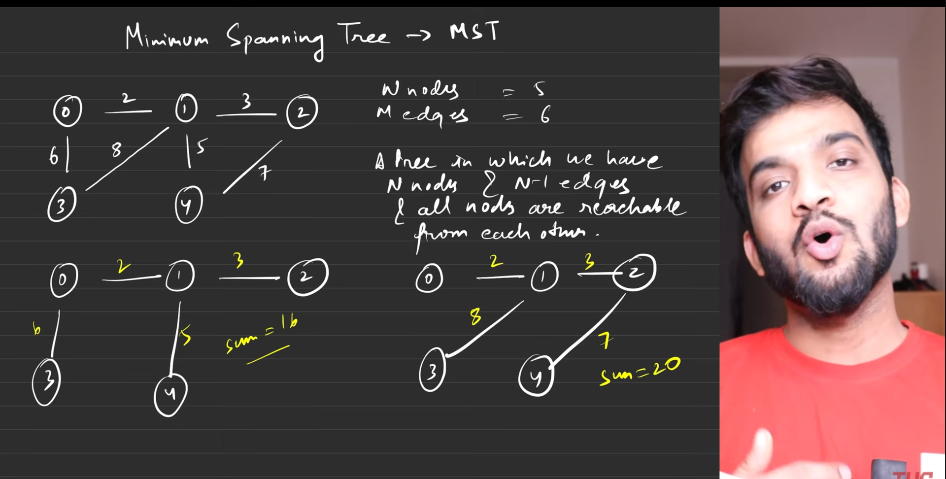 Minimum Spanning Tree → MST
0 2 1 3 2
6 8 5 7
3 4
N nodes = 5
M edges = 6
A tree in which we have
N nodes & N-1 edges
& all nods are reachable
from each other.
0 2 1 3 2
6 5 sum = 16
3 4
0 2 1 3 2
8 7
3 4 sum = 20